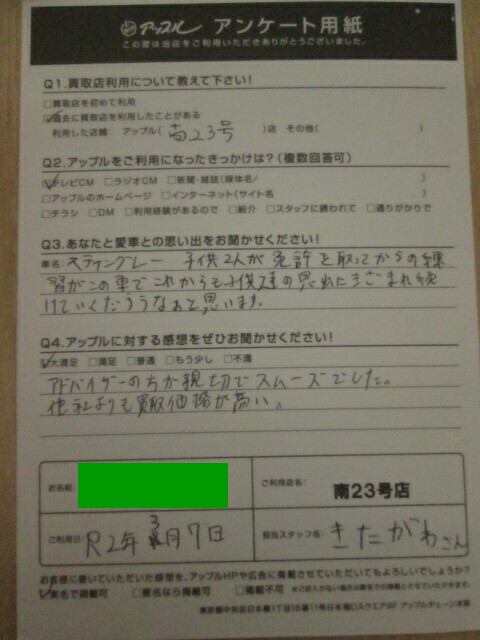 アップル アンケート用紙
この度は当店をご利用いただきありがとうございました。
Q1.買取店利用について教えて下さい!
□買取店を初めて利用
☑過去に買取店を利用したことがある
利用した店舗: アップル(南23号)店 その他( )
Q2.アップルをご利用になったきっかけは?(複数回答可)
☑テレビCM □ラジオCM □新聞・雑誌(媒体名/ )
□アップルのホームページ □インターネット(サイト名 )
□チラシ □DM □利用経験があるので □紹介 □スタッフに誘われて □通りがかりで
Q3.あなたと愛車との思い出をお聞かせください!
車名:スティングレー 子供2人が免許を取ってからの練
習がこの車でこれからも子供達の思出にきざまれ続
けていくだろうなぁと思います。
Q4.アップルに対する感想をぜひお聞かせください!
☑大満足 □満足 □普通 □もう少し □不満
アドバイザーの方が親切でスムーズでした。
他社よりも買取価格が高い。
お名前
ご利用店名: 南23号店
ご利用日 R2年3月7日
担当スタッフ名: きたがわさん
お客様に書いていただいた感想を、アップルHPや広告に掲載させていただいてもよろしいでしょうか?
☑実名で掲載可 □匿名なら掲載可 □掲載不可 ※ご記入がない場合は匿名での掲載とさせていただきます。
東京都中央区日本橋1丁目16番11号日本橋Dスクエア8F アップルチェーン本部